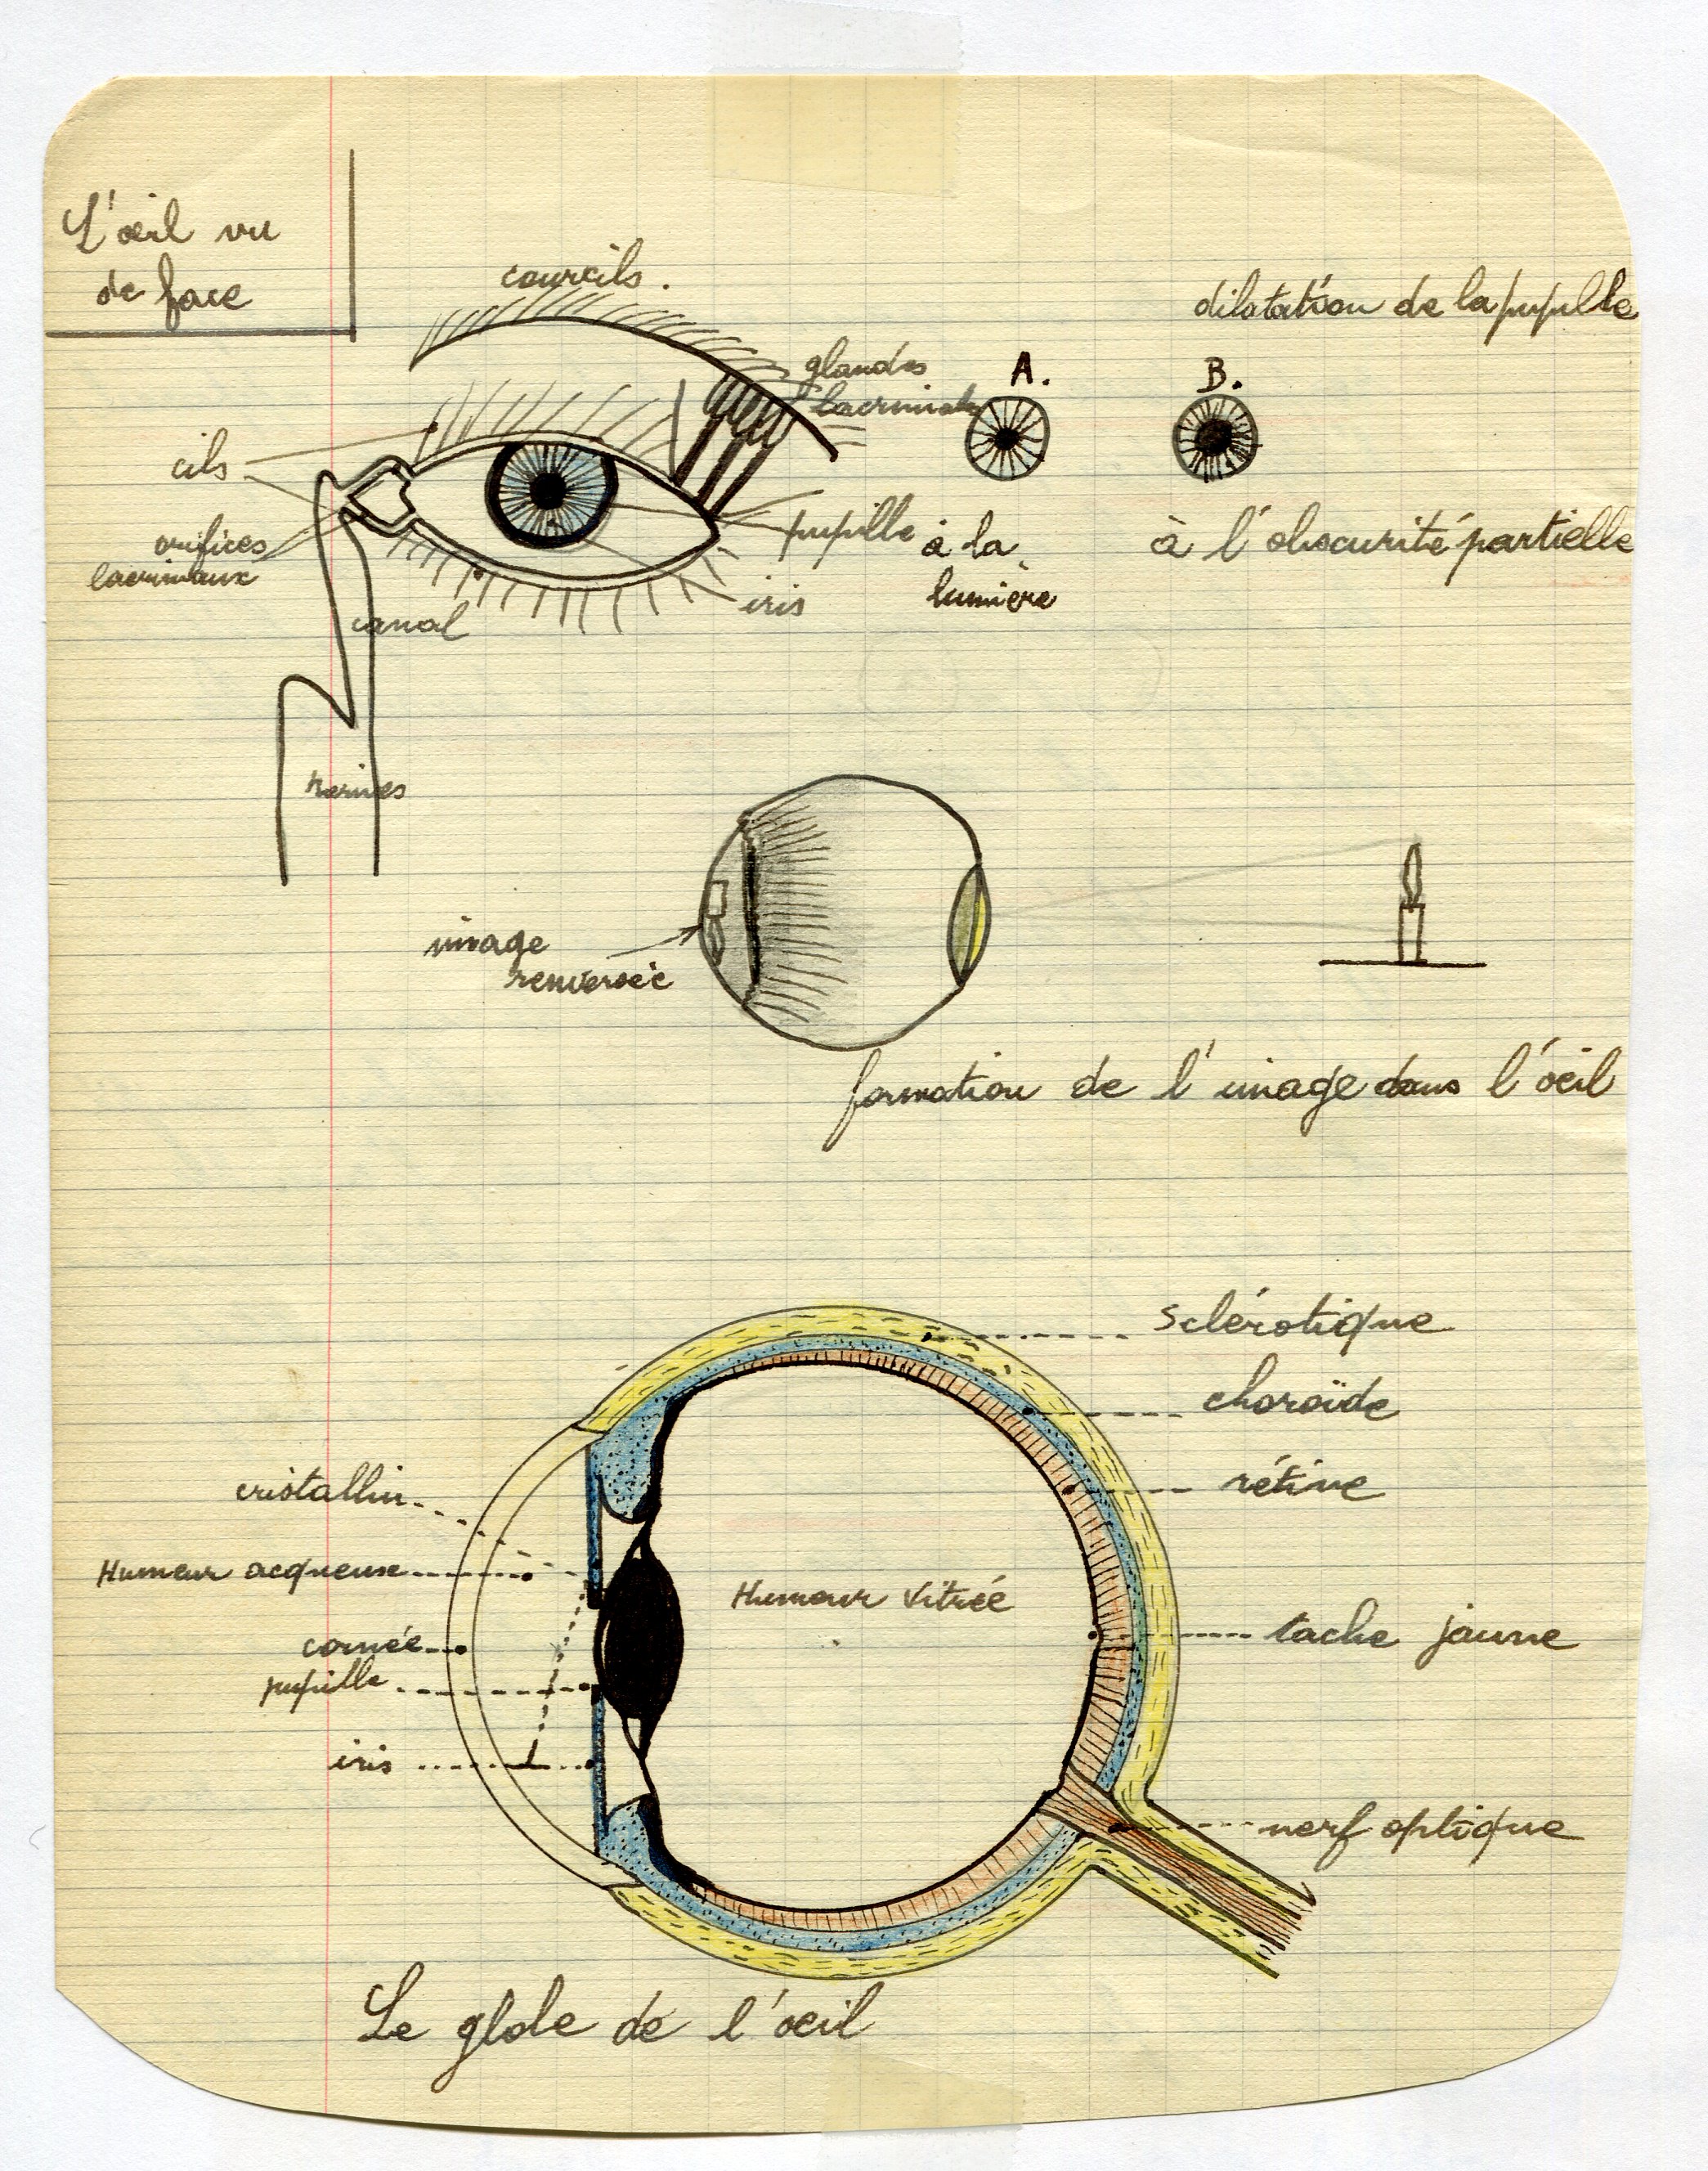 L'œil vu
de face
sourcils.
dilatation de la pupille
glandes
lacrimales
A.
B.
cils
pupille
à la
lumière
à l'obscurité partielle
orifices
lacrimaux
iris
canal
narines
image
renversée
formation de l'image dans l'œil
sclérotique
choroïde
rétine
cristallin
Humeur acqueuse
Humeur Vitrée
cornée
tache jaune
pupille
iris
nerf optique
Le globe de l'œil